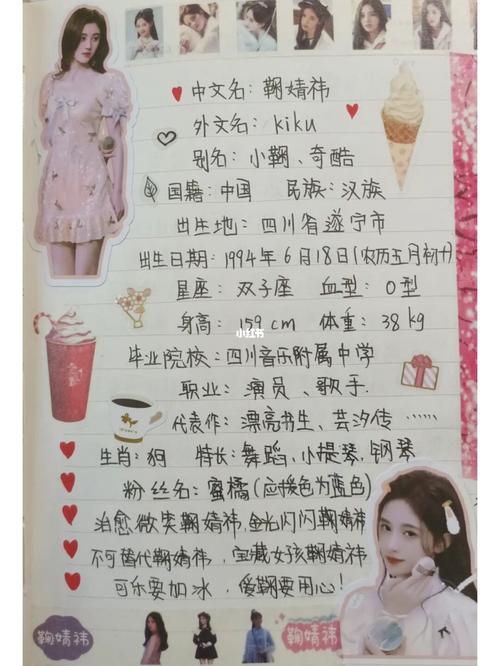 中文名：鞠婧祎
外文名：kiku
别名：小鞠、奇酷
国籍：中国 民族：汉族
出生地：四川省遂宁市
出生日期：1994年6月18日(农历五月初十)
星座：双子座 血型：O型
身高：159cm 体重：38kg
小红书
毕业院校：四川音乐附属中学
职业：演员、歌手.
代表作：漂亮书生、芸汐传……
生肖：狗 特长：舞蹈、小提琴，钢琴
粉丝名：蜜橘(应援色为蓝色)
治愈微笑鞠婧祎，金光闪闪鞠婧祎
不可替代鞠婧祎，宝藏女孩鞠婧祎
可乐要加冰，爱鞠要用心！
鞠婧祎 鞠婧祎